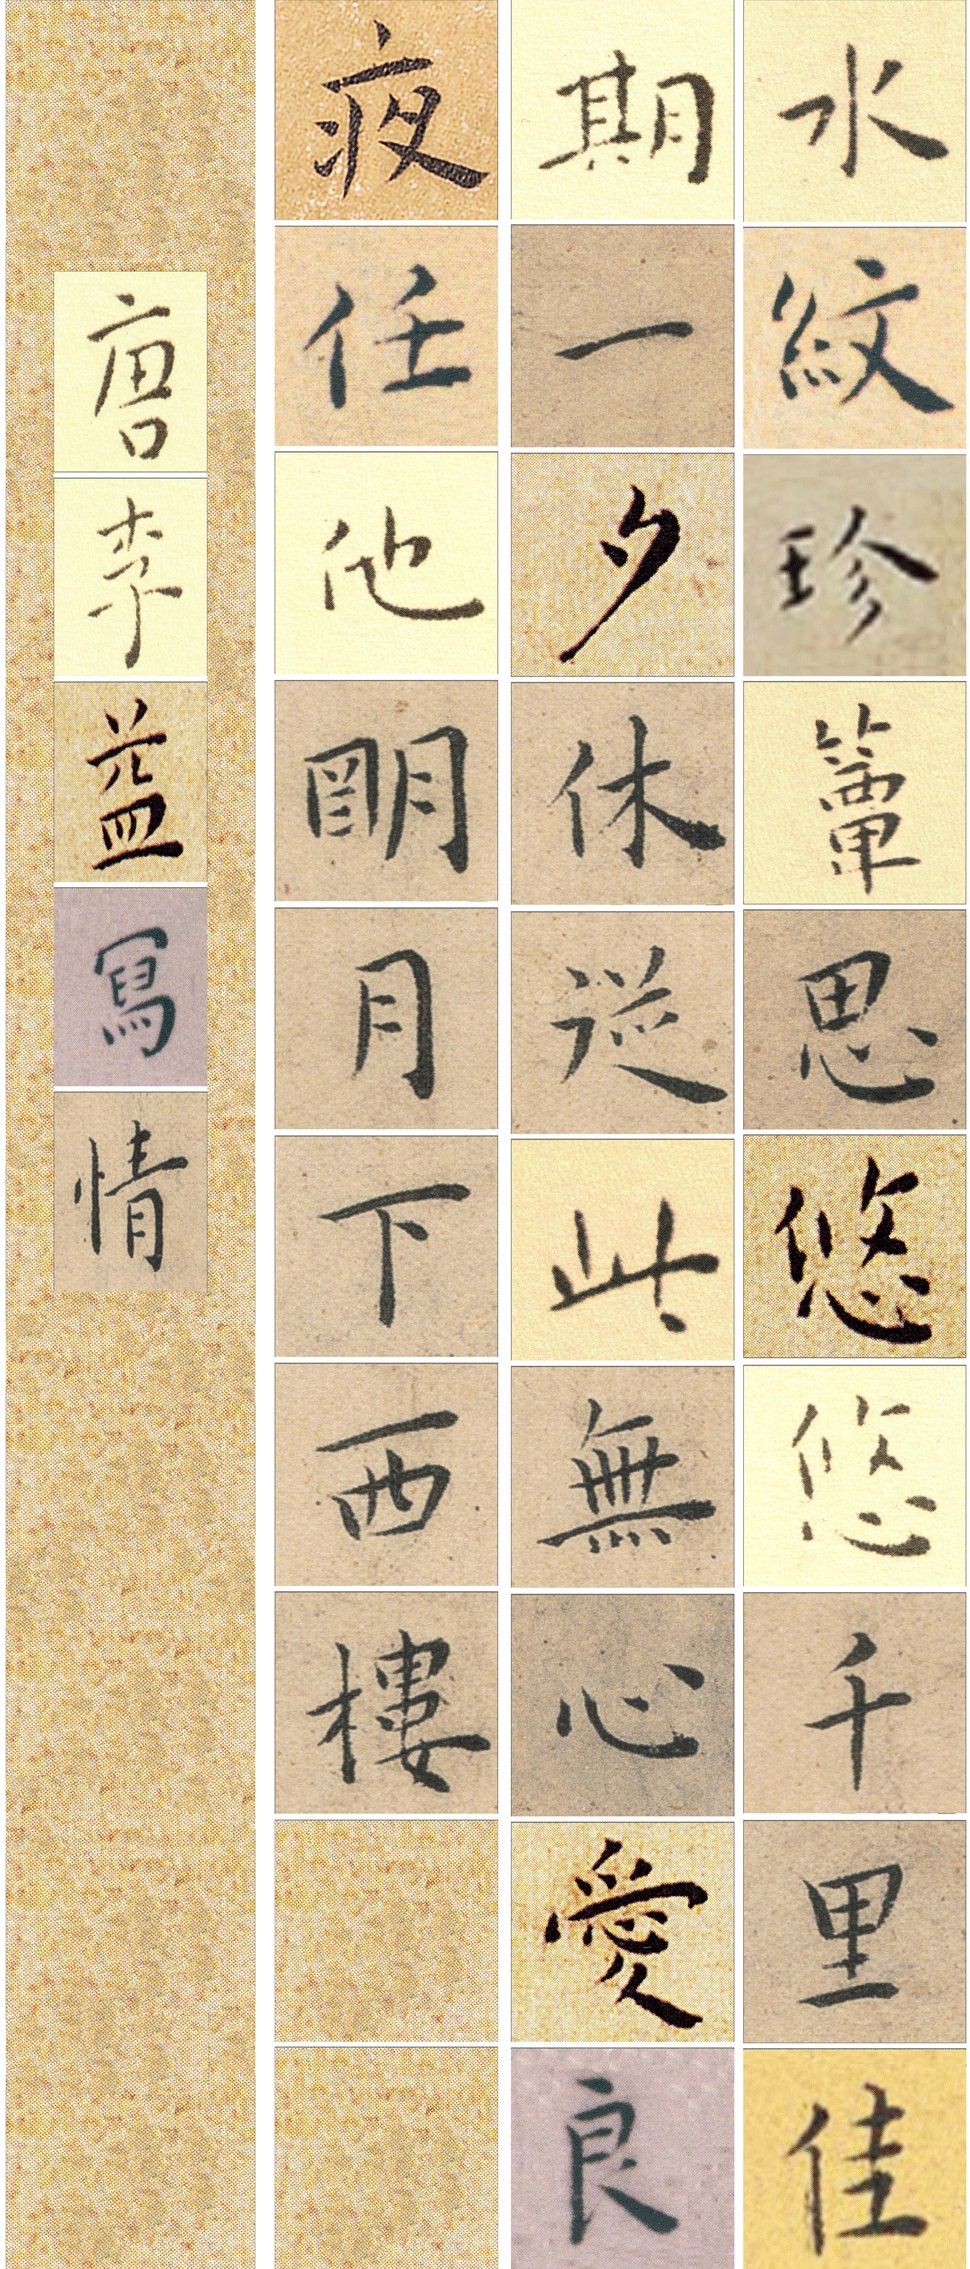 水紋珍簟思悠悠千里佳
期一夕休從此無心愛良
夜任他朙月下西樓
唐李益寫情